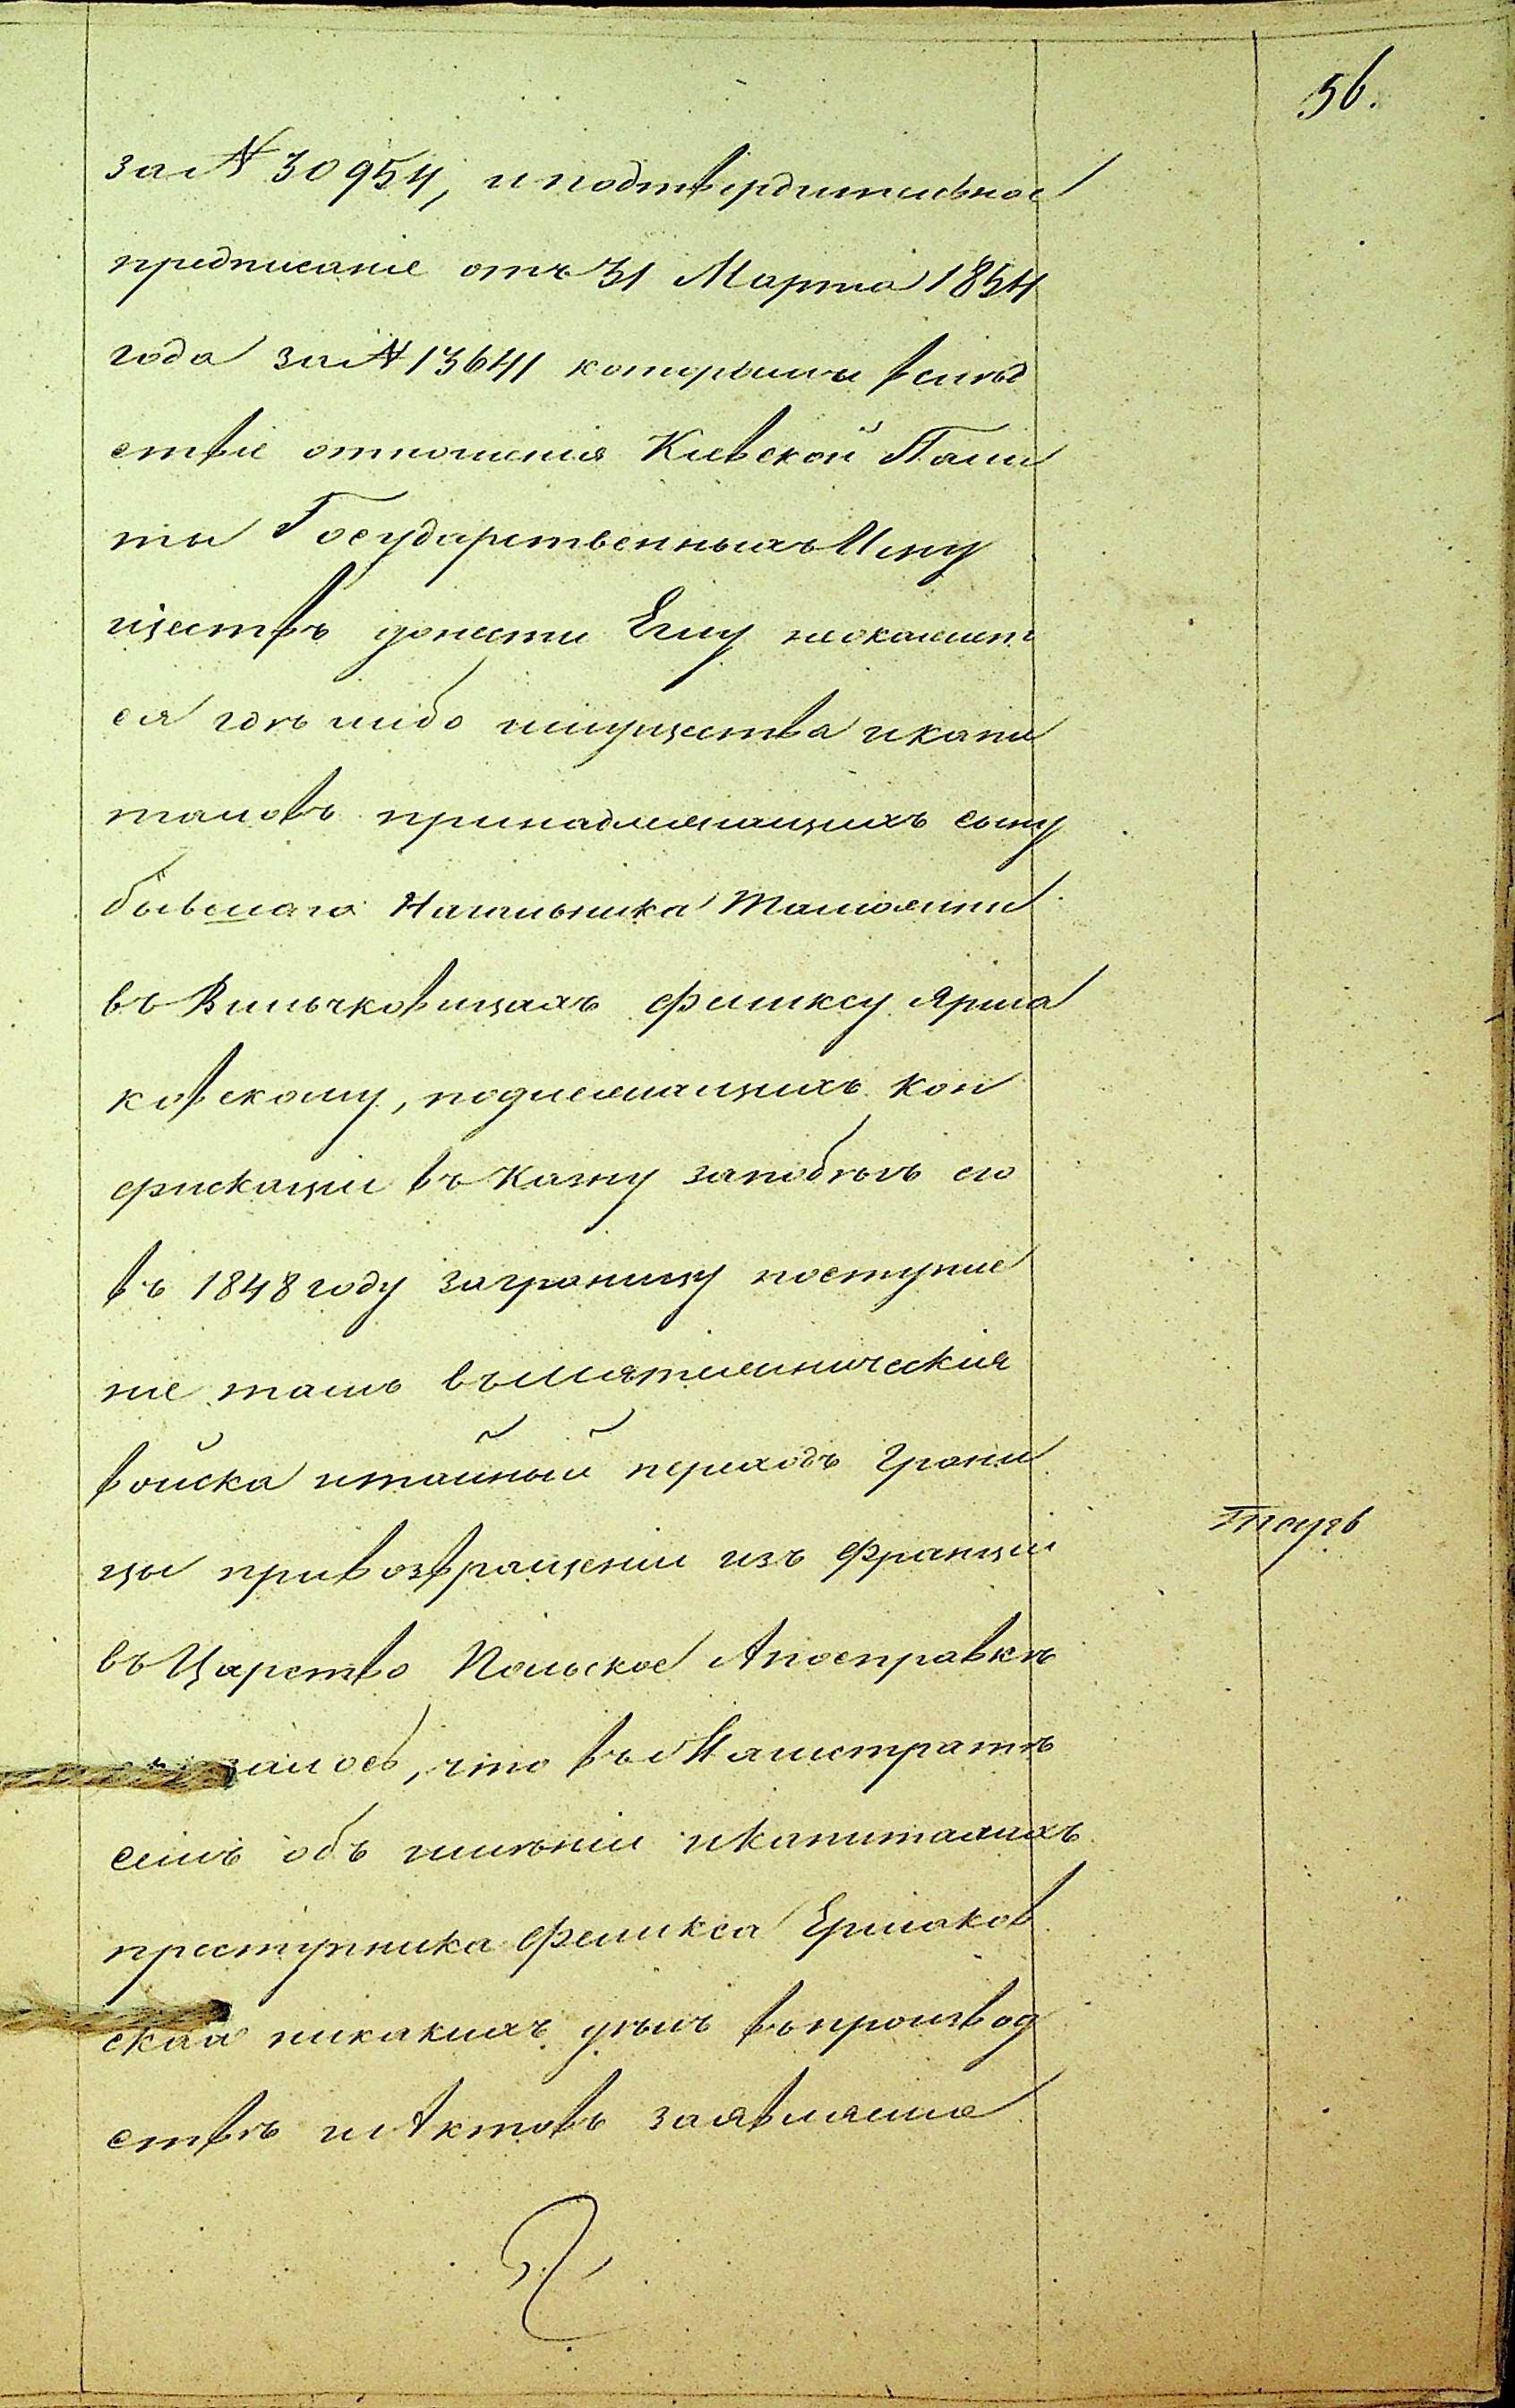 56.
за N 30954, и подтвердительное
предписаніе отъ 31 Марта 1854
года за N 13641 которыми вслѣд
ствіе отношенія Кіевской Пала
ты Государственныхъ Иму
ществъ донести Ему неокажет
ся гдѣ либо имущества и капи
таловъ принадлежащихъ сыну
бывшаго Начальника Таможни
въ Вильчковицахъ Феликсу Ярма
ковскому, подлежащихъ кон
фискаціи въ Казну запобѣгъ его
въ 1848 году заграницу поступле
ніе тамъ въ Мятежническія
войска и тайный переходъ Грани
цы при возвращеніи изъ Франціи
въ Царство Польское А посправкѣ
оказалось, что въ Магистратѣ
семъ объ имѣніи и Капиталахъ
преступника Феликса Ермаков
скаго никакихъ дѣлъ въ производ
ствѣ и Актовъ заявленія